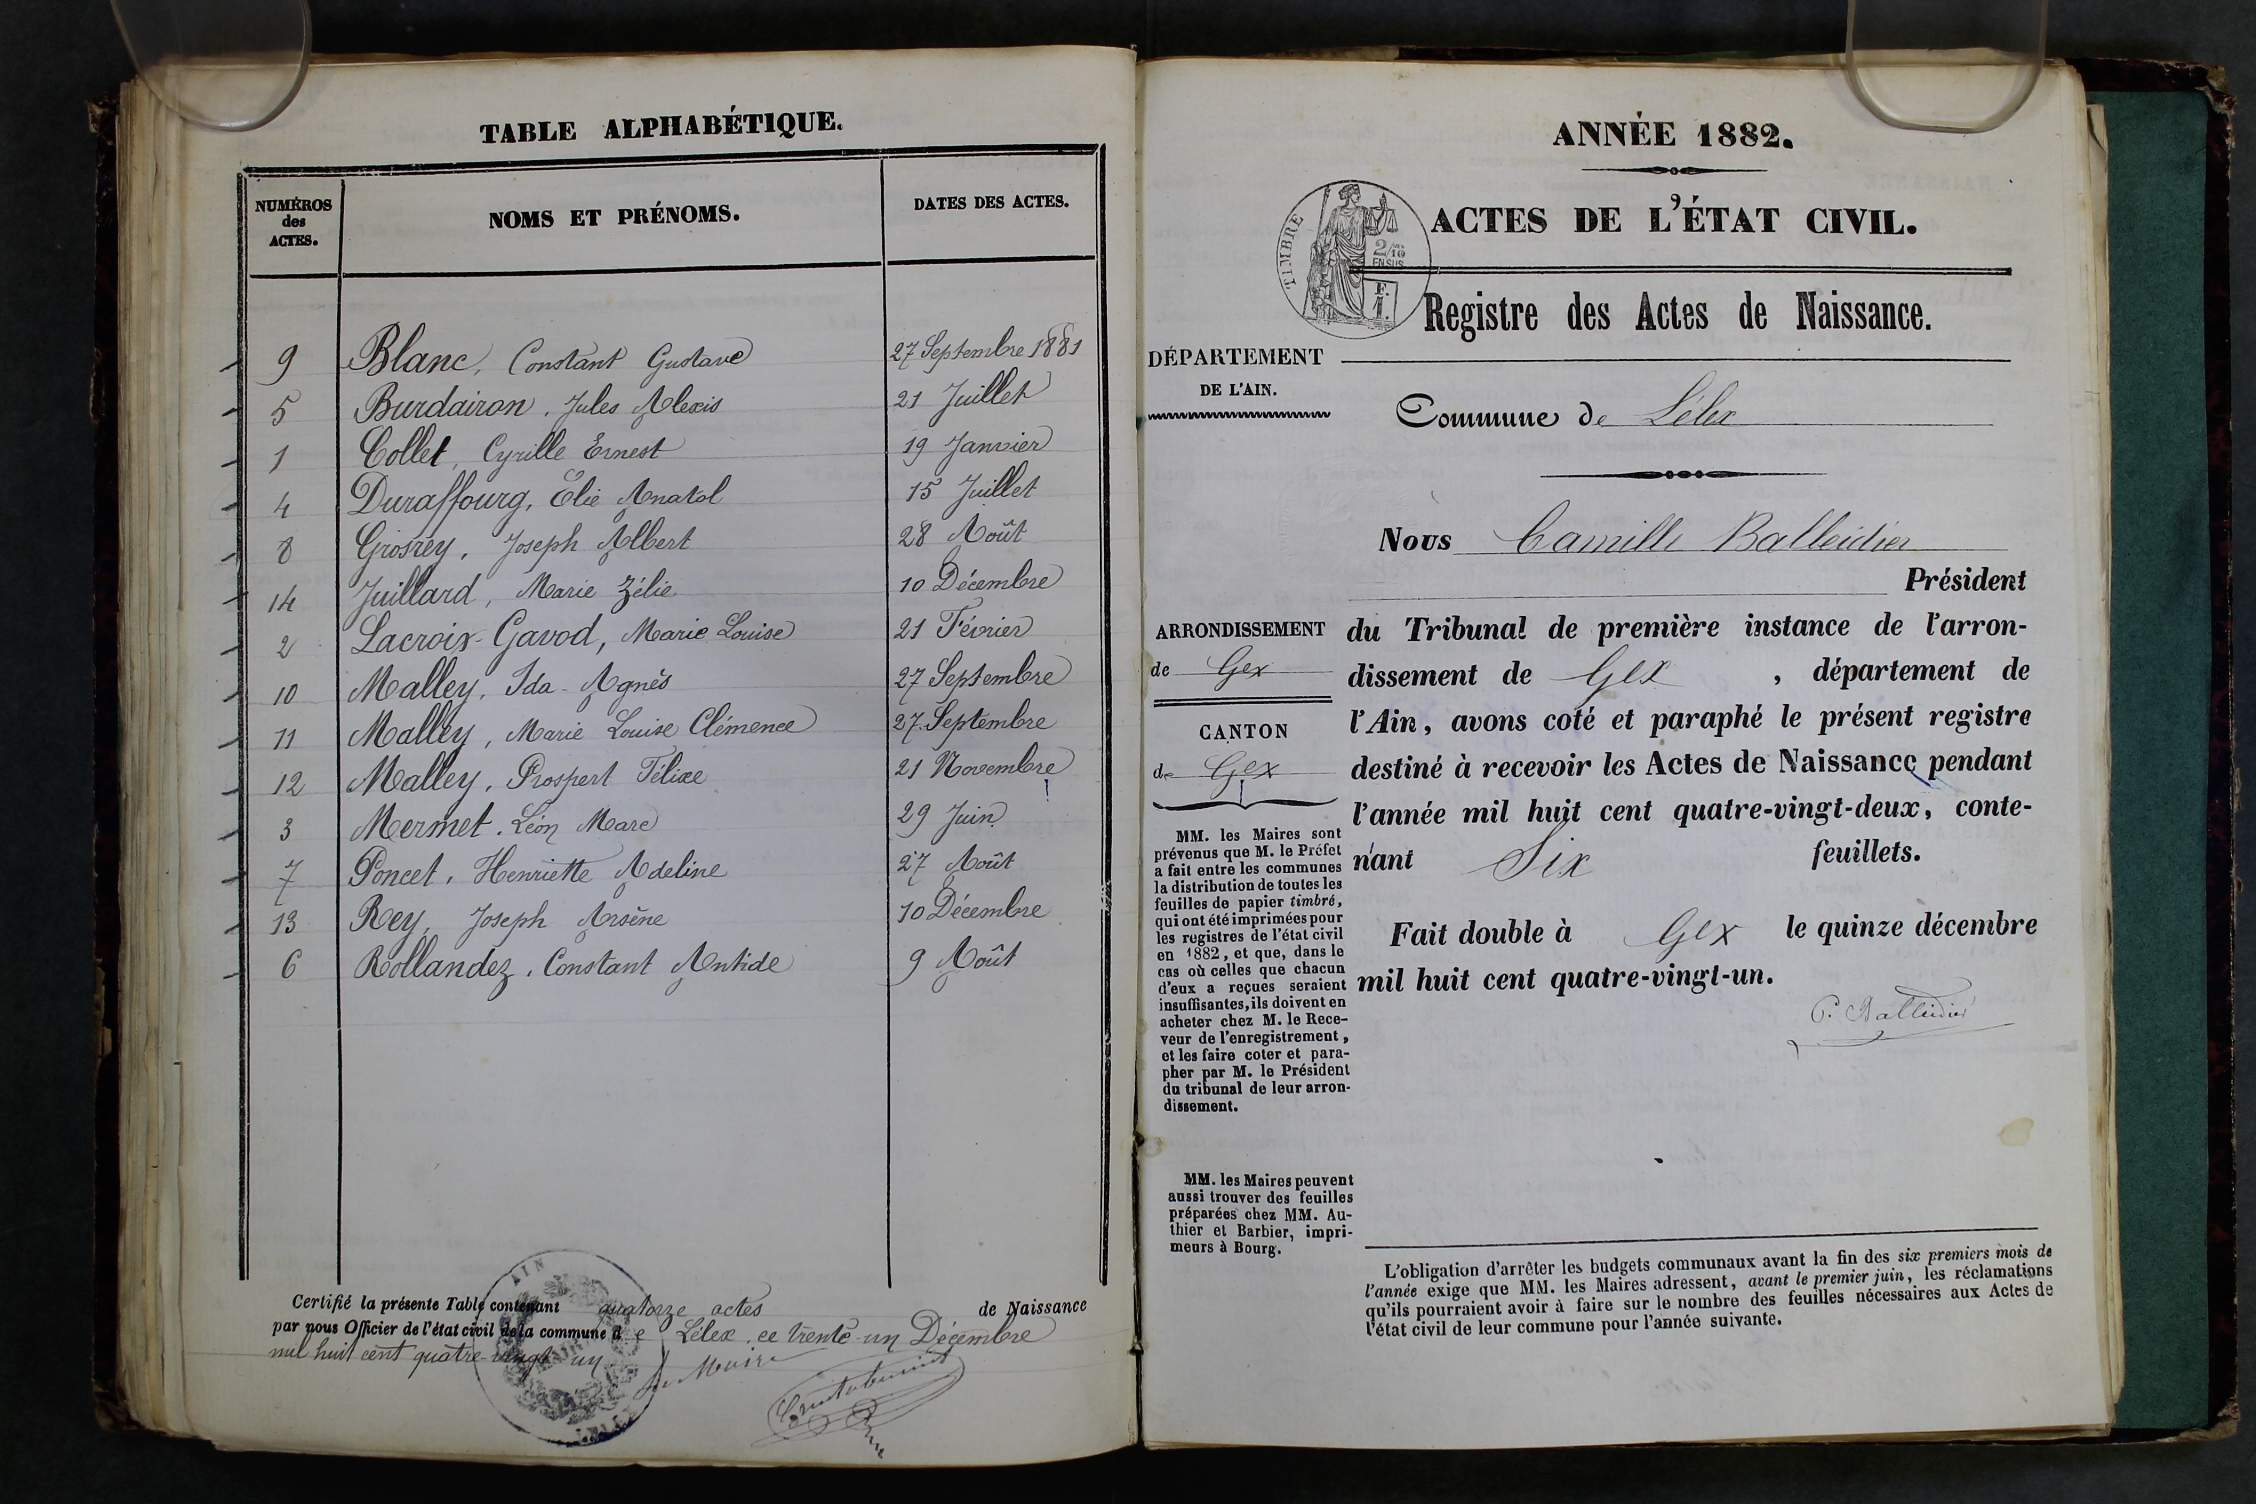 TABLE ALPHABÉTIQUE.
NUMÉROS des ACTES. NOMS ET PRÉNOMS. DATES DES ACTES.
9 Blanc, Constant Gustave 27 Septembre 1881
5 Burdairon, Jules Alexis 21 Juillet
1 Collet, Cyrille Ernest 19 Janvier
4 Duraffourg, Élie Anatol 15 Juillet
8 Grosrey, Joseph Albert 28 Août
14 Juillard, Marie Zélie 10 Décembre
2 Lacroix-Gavod, Marie Louise 21 Février
10 Malley, Ida-Agnès 27 Septembre
11 Malley, Marie Louise Clémence 27 Septembre
12 Malley, Prospert Félixe 21 Novembre
3 Mermet, Léon Marc 29 Juin
7 Poncet, Henriette Adeline 27 Août
13 Rey, Joseph Arsène 10 Décembre
6 Rollandez, Constant Antide 9 Août
Certifié la présente Table contenant quatorze actes de Naissance
par nous Officier de l'état civil de la commune de Lélex, ce trente-un Décembre
mil huit cent quatre-vingt un
Le Maire
AIN
MAIRIE
LELEX
ANNÉE 1882.
TIMBRE
2/10 EN SUS
F. 1.
ACTES DE L'ÉTAT CIVIL.
Registre des Actes de Naissance.
DÉPARTEMENT
DE L'AIN.
Commune de Lélex
Nous Camille Balleidier
Président
ARRONDISSEMENT
de Gex
CANTON
de Gex
du Tribunal de première instance de l'arron-
dissement de Gex, département de
l'Ain, avons coté et paraphé le présent registre
destiné à recevoir les Actes de Naissance pendant
l'année mil huit cent quatre-vingt-deux, conte-
nant Six feuillets.
Fait double à Gex le quinze décembre
mil huit cent quatre-vingt-un.
C. Balleidier
MM. les Maires sont
prévenus que M. le Préfet
a fait entre les communes
la distribution de toutes les
feuilles de papier timbré,
qui ont été imprimées pour
les registres de l'état civil
en 1882, et que, dans le
cas où celles que chacun
d'eux a reçues seraient
insuffisantes, ils doivent en
acheter chez M. le Rece-
veur de l'enregistrement,
et les faire coter et para-
pher par M. le Président
du tribunal de leur arron-
dissement.
MM. les Maires peuvent
aussi trouver des feuilles
préparées chez MM. Au-
thier et Barbier, impri-
meurs à Bourg.
L'obligation d'arrêter les budgets communaux avant la fin des six premiers mois de
l'année exige que MM. les Maires adressent, avant le premier juin, les réclamations
qu'ils pourraient avoir à faire sur le nombre des feuilles nécessaires aux Actes de
l'état civil de leur commune pour l'année suivante.